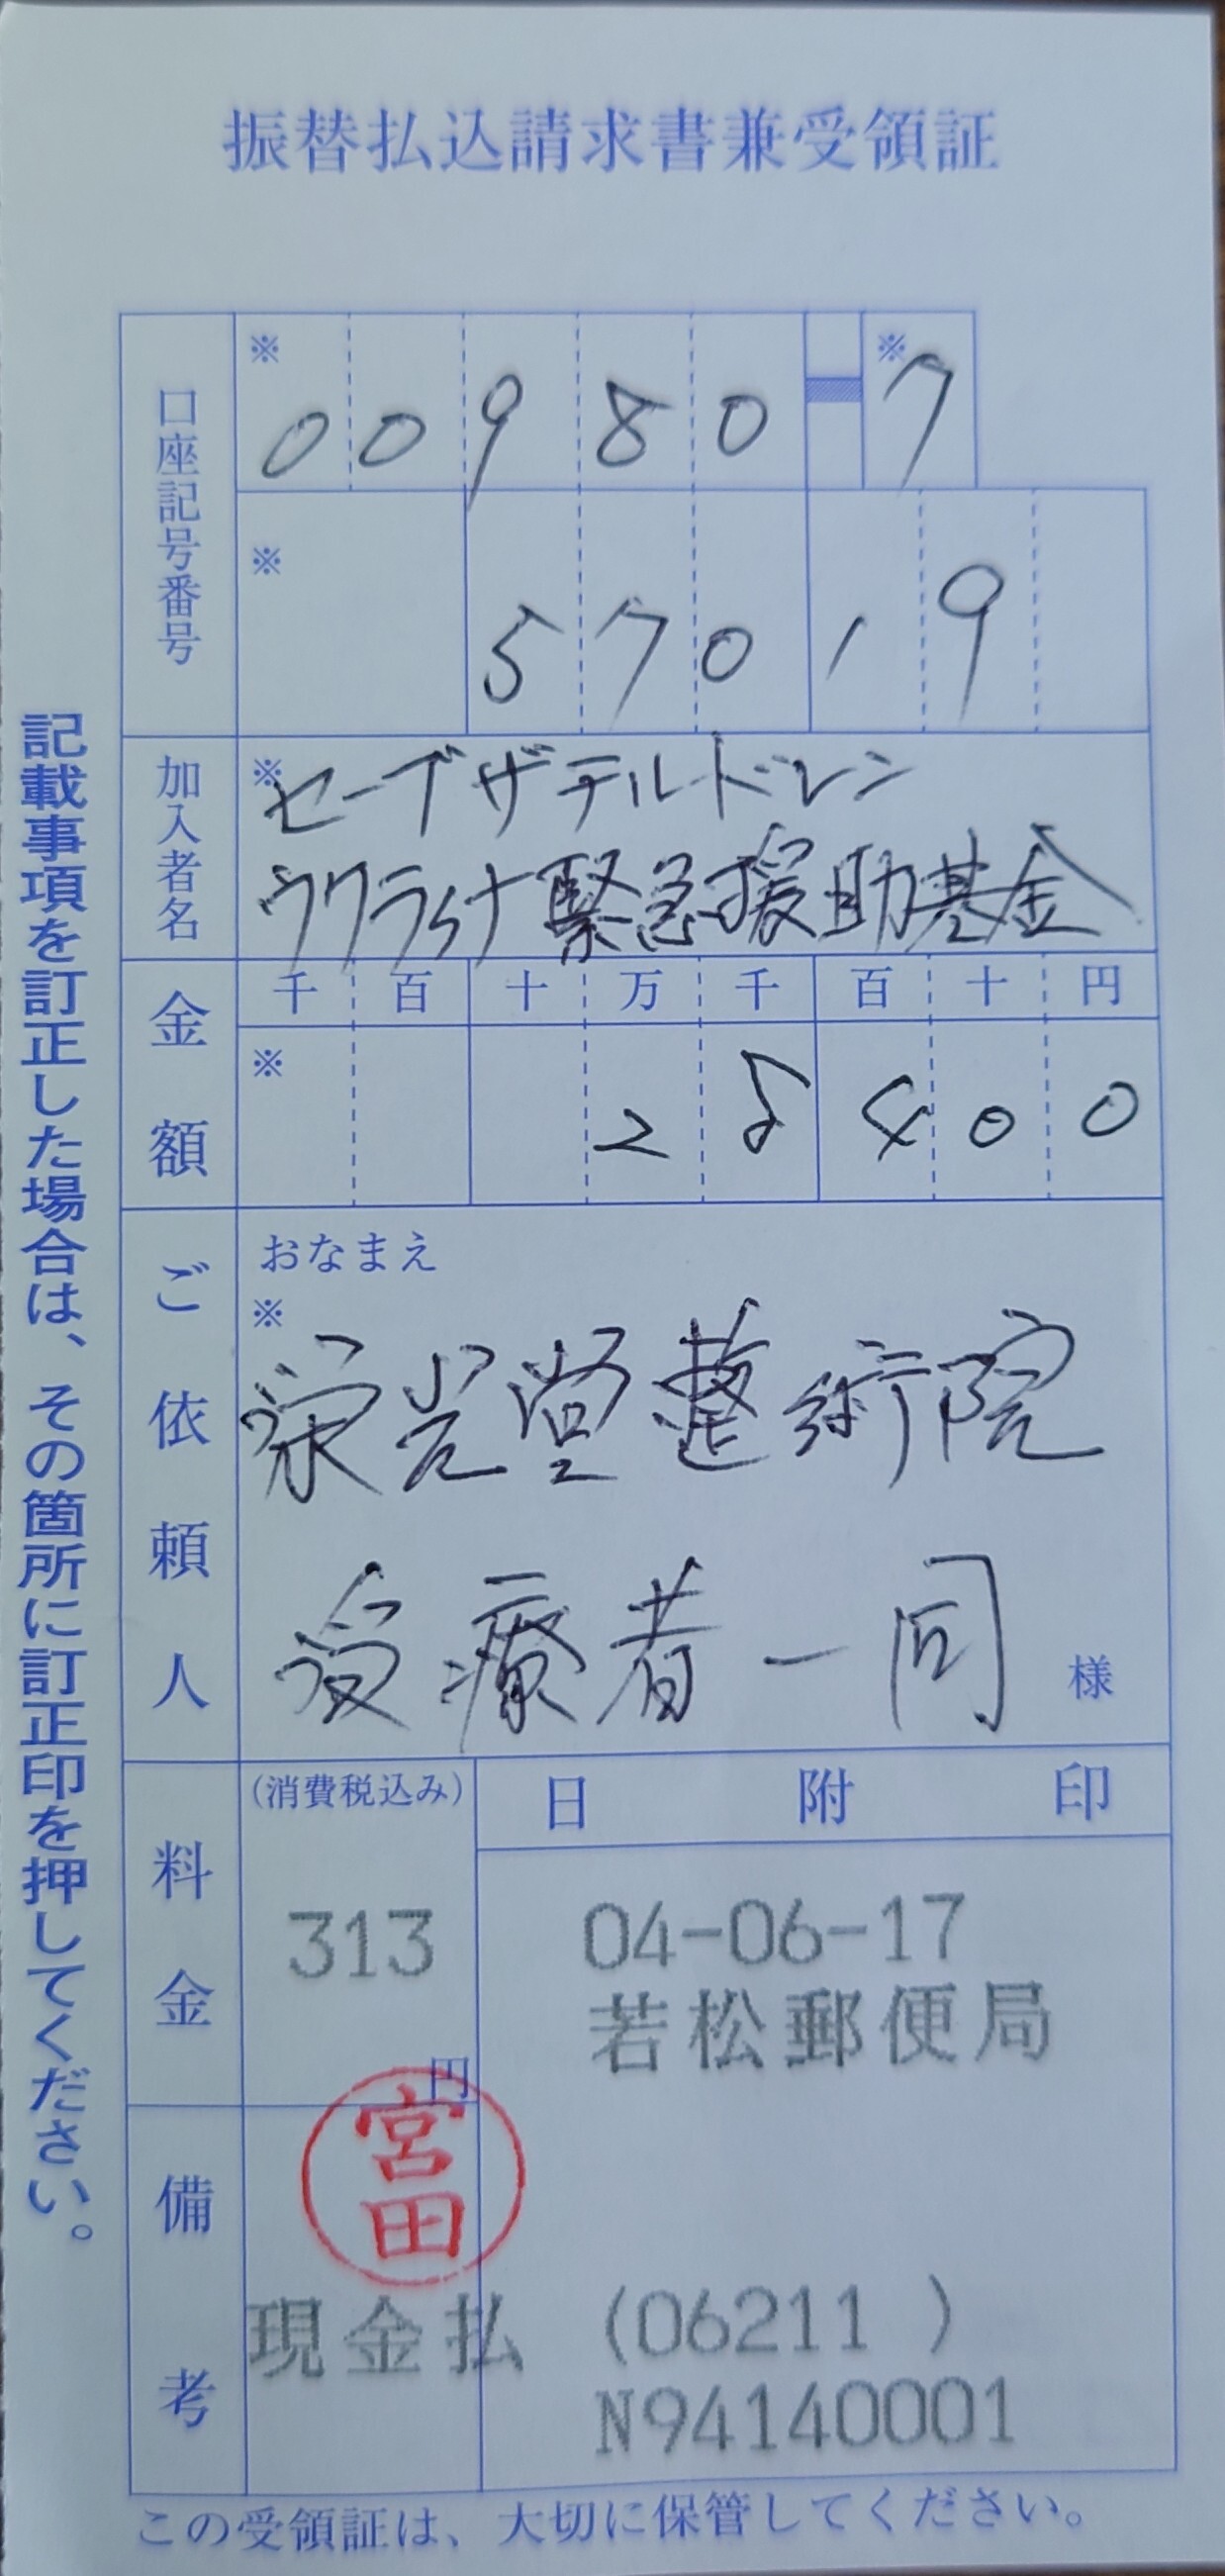 振替払込請求書兼受領証
口座記号番号
※ 00980-※7
※ 57019
加入者名
※セーブザチルドレン
ウクライナ緊急援助基金
金額
千 百 十 万 千 百 十 円
※ 28400
ご依頼人
おなまえ
※
栄光堂整術院
受療者一同 様
料金
(消費税込み)
313
円
日附印
04-06-17
若松郵便局
備考
宮田
現金払 (06211 )
N94140001
この受領証は、大切に保管してください。
記載事項を訂正した場合は、その箇所に訂正印を押してください。